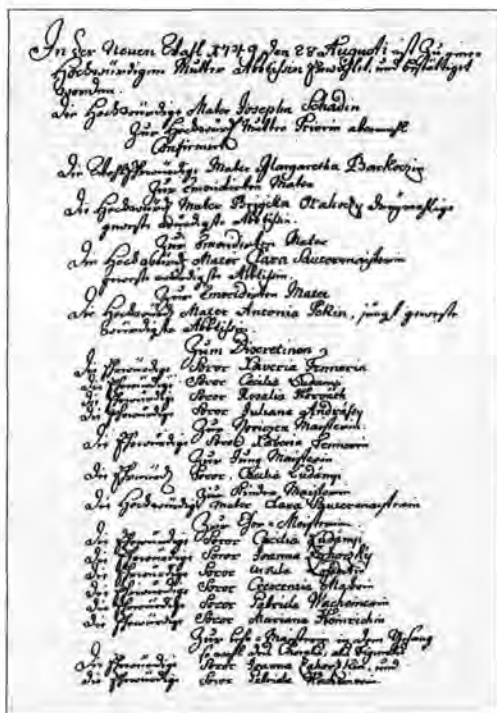 In der Neuen Wahl 1749 den 28 Augusti ist zu einer
Hochwürdigen Mutter Abbtissin erwählet, und bestättiget
worden.
Die Hochwürdige Mater Josepha Schadin
Zur Hochwürd Mutter Priorin abermahl
Confirmiert
Die Mater Margaretha Barkoczin
Zur Emeridirten Mater
Die Hochwürd Mater Brigitta
geweste würdigste Abbtissin.
Zur Emeridirten Mater
Die Mater Clara Sautermaisterin
geweste würdigste Abbtissin.
Zur Emeridirten Mater
Die Hochwürd Mater Antonia, jüngst geweste
würdigste Abbtissin.
Zum Discretinen
Die Ehrwürdige Soror Xaveria
Die Ehrwürdige Soror Cecilia Ludanyi
Die Ehrwürdige Soror Rosalia Horvath
Die Ehrwürdige Soror Juliana Andrássy
Zur Novizen Maisterin
Die Ehrwürdige Soror Xaveria
Zur Jung Maisterin
Die Ehrwürd Soror Cecilia Ludanyi
Zur Kinder Maisterin
Die Hochwürdige Mater Clara Sautermaisterin
Zur Chor-Maisterin
Die Ehrwürdige Soror Cecilia Ludanyi
Die Ehrwürdige Soror Joanna
Die Ehrwürdige Soror Ursula
Die Ehrwürdige Soror Crescentia
Die Ehrwürdige Soror Gabriela
Die Ehrwürdige Soror Mariana
Zur Maisterin in dem Gesang
so wohl des Chorals, als Figurals
Die Ehrwürdige Soror Joanna, und
die Ehrwürdige Soror Gabriela